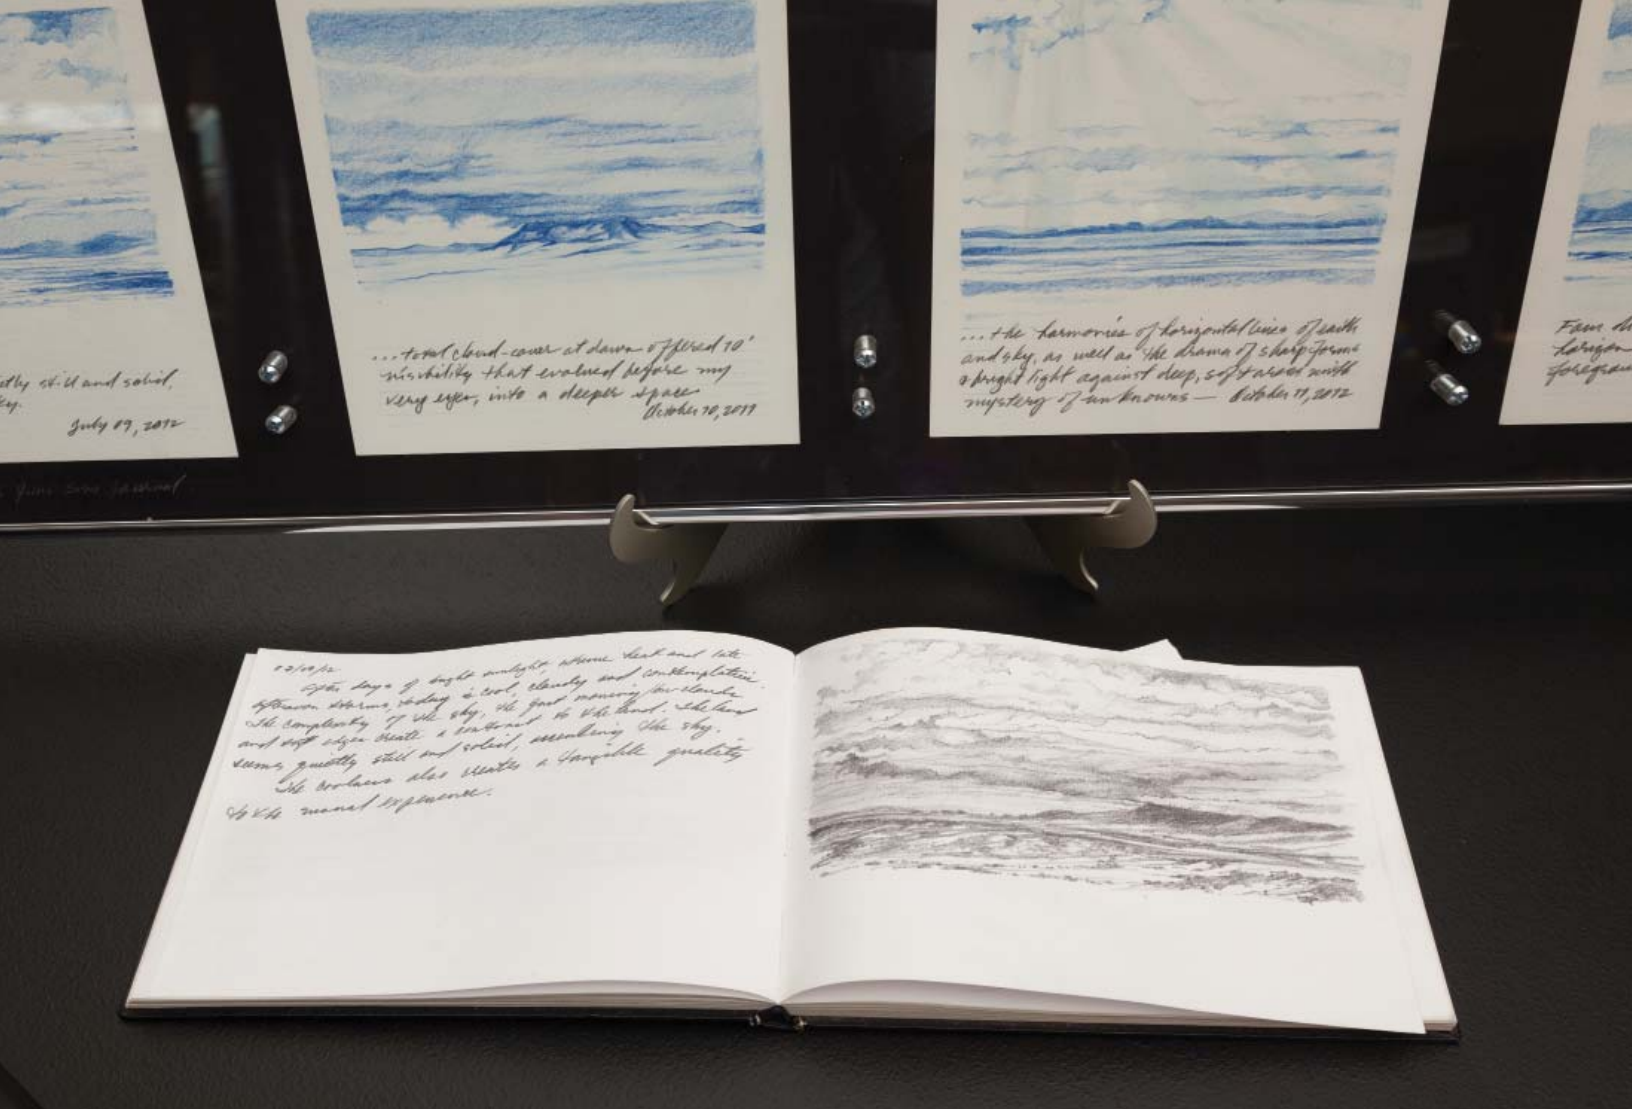 still and solid,
July 09, 2012
Journal
...total cloud-cover at dawn offered 10'
visibility that evolved before my
very eyes, into a deeper space
October 10, 2011
...the harmonies of horizontal lines of earth
and sky, as well as the drama of sharp forms
bright light against deep, soft areas with
mystery of unknowns —
horizon
foregrou
After days of bright sunlight, intense heat and late
afternoon storms, today is cool, cloudy and contemplative.
The complexity of the sky, the fast moving clouds
and soft edges create a contrast to the land. The land
seems quietly still and solid, anchoring the sky.
The coolness also creates a tangible quality
to the experience.